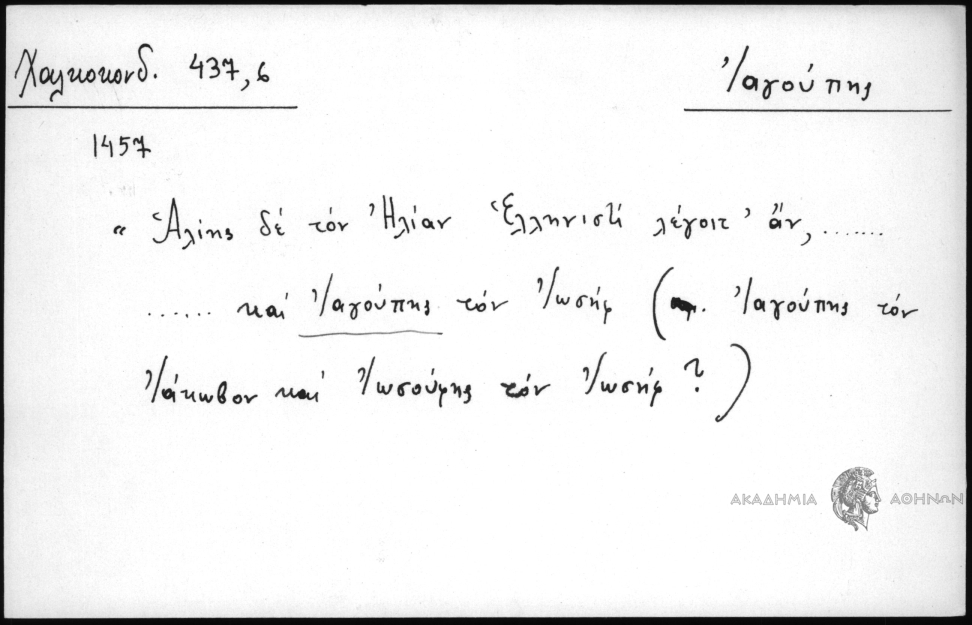 Χαλκοκονδ. 437,6
Ἰαγούπης
1457
“ Ἀλίης δέ τόν Ἠλίαν Ἑλληνιστί λέγοιτ’ ἄν, .......
...... καί Ἰαγούπης τόν Ἰωσήφ ( . Ἰαγούπης τόν
Ἰάκωβον καί Ἰωσούφης τόν Ἰωσήφ ? )
ΑΚΑΔΗΜΙΑ ΑΘΗΝΩΝ